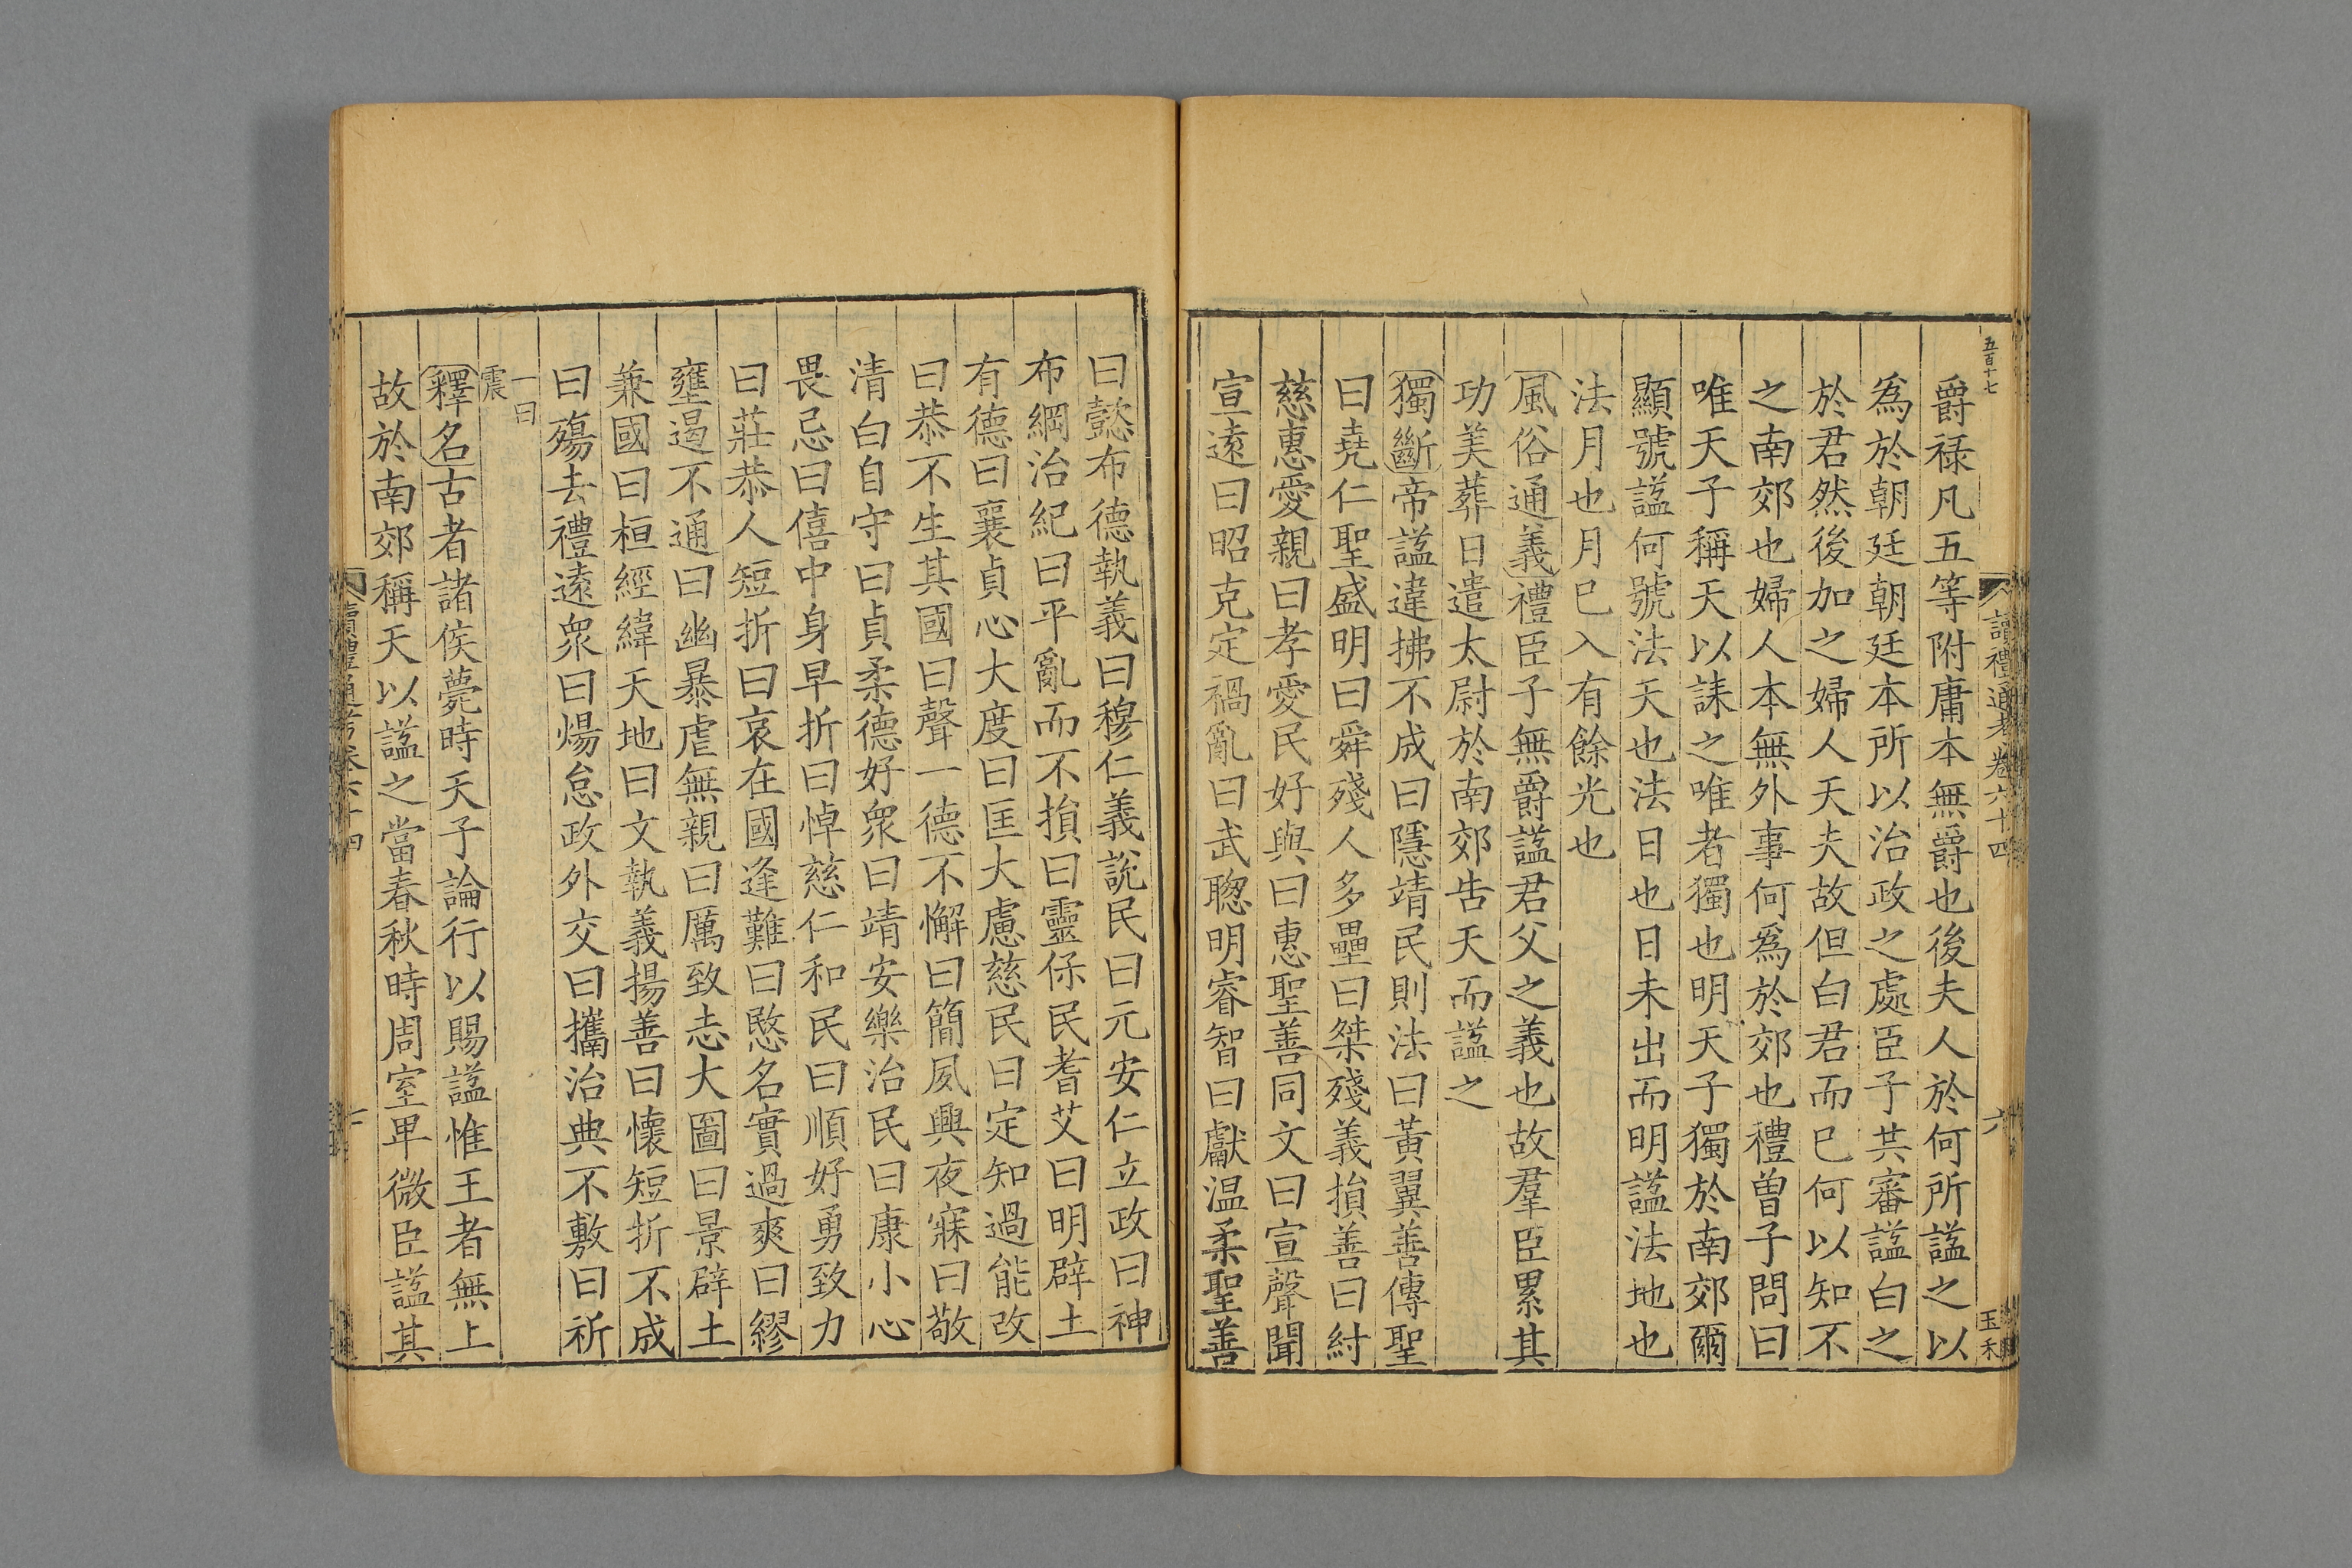 五百十七
讀禮通考卷六十四
六
玉禾
爵祿凡五等附庸本無爵也後夫人於何所諡之以
爲於朝廷朝廷本所以治政之處臣子共審諡白之
於君然後加之婦人天夫故但白君而已何以知不
之南郊也婦人本無外事何爲於郊也禮曾子問曰
唯天子稱天以誄之唯者獨也明天子獨於南郊爾
顯號諡何號法天也法日也日未出而明諡法地也
法月也月已入有餘光也
風俗通義禮臣子無爵諡君父之義也故羣臣累其
功美葬日遣太尉於南郊告天而諡之
獨斷帝諡違拂不成曰隱靖民則法曰黃翼善傳聖
曰堯仁聖盛明曰舜殘人多壘曰桀殘義損善曰紂
慈惠愛親曰孝愛民好與曰惠聖善同文曰宣聲聞
宣遠曰昭克定禍亂曰武聰明睿智曰獻温柔聖善
曰懿布德執義曰穆仁義說民曰元安仁立政曰神
布綱治紀曰平亂而不損曰靈保民耆艾曰明辟土
有德曰襄貞心大度曰匡大慮慈民曰定知過能改
曰恭不生其國曰聲一德不懈曰簡夙興夜寐曰敬
清白自守曰貞柔德好衆曰靖安樂治民曰康小心
畏忌曰僖中身早折曰悼慈仁和民曰順好勇致力
曰莊恭人短折曰哀在國逢難曰愍名實過爽曰繆
壅遏不通曰幽暴虐無親曰厲致志大圖曰景辟土
兼國曰桓經緯天地曰文執義揚善曰懷短折不成
曰殤去禮遠衆曰煬怠政外交曰攜治典不敷曰祈
一曰
震
釋名古者諸侯薨時天子論行以賜諡惟王者無上
故於南郊稱天以諡之當春秋時周室卑微臣諡其
讀禮通考卷六十四